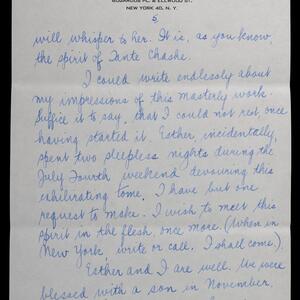 EDWARDS PL. & ELLWOOD ST.
NEW YORK 40, N. Y.
5
will whisper to her. It is, as you know,
the spirit of Tante Chashe.
I could write endlessly about
my impressions of this masterly work.
Suffice it to say, that I could not rest, once
having started it. Esther, incidentally,
spent two sleepless nights during the
July Fourth weekend devouring this
exhilirating tome. I have but one
request to make. I wish to meet this
spirit in the flesh, once more. (When in
New York, write or call. I shall come.)
Esther and I are well. We were
blessed with a son in November.